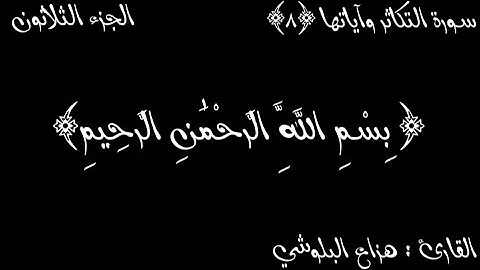 سورة التكاثر وآياتها ﴿٨﴾
الجزء الثلاثون
﴿بِسْمِ اللَّهِ الرَّحْمَٰنِ الرَّحِيمِ﴾
القارئ : هزاع البلوشي